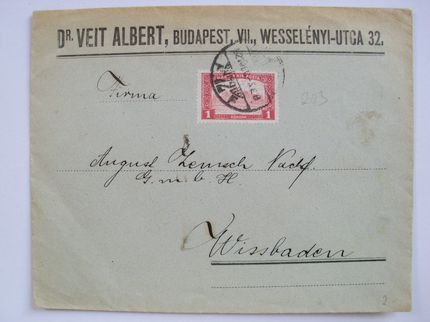 DR. VEIT ALBERT, BUDAPEST, VII., WESSELÉNYI-UTCA 32.
Firma
1 1
August Zemsch Nachf.
G. m. b. H.
Wissbaden